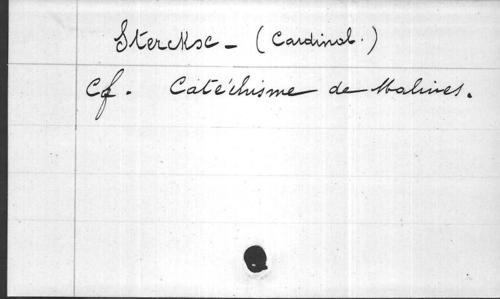 Sterckse - (Cardinal.)
Cf. Catéchisme de Malines.